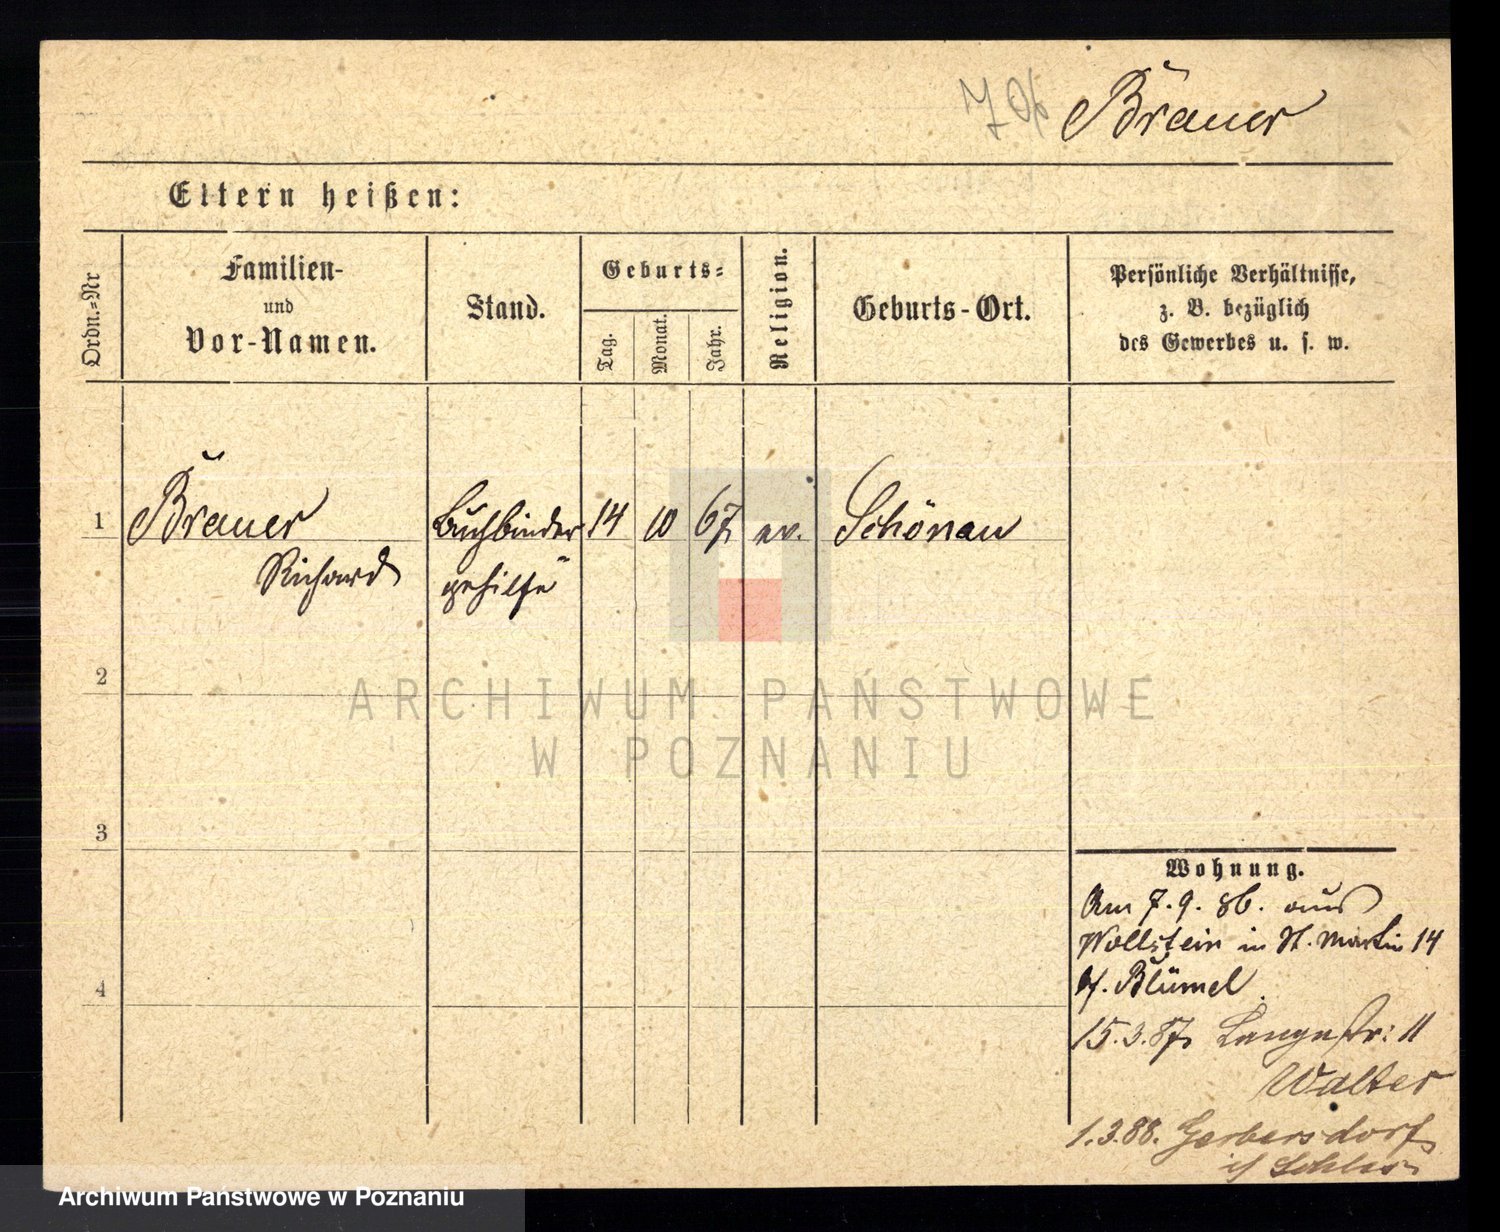 Brauer
Eltern heißen:
Ordn.-Nr
Familien-
und
Vor-Namen.
Stand.
Geburts-
Tag.
Monat.
Jahr.
Religion.
Geburts-Ort.
Persönliche Verhältnisse,
z. B. bezüglich
des Gewerbes u. s. w.
1 Brauer Buchbinder 14 10 67 ev. Schönau
Richard gehilfe
2
ARCHIWUM PAŃSTWOWE
W POZNANIU
3
4
Wohnung.
Am 7.9.86. aus
Wollstein in St. Martin 14
Blümel
15.3.87 Langestr: 11
Walter
1.3.88. Gerbersdorf
Archiwum Państwowe w Poznaniu